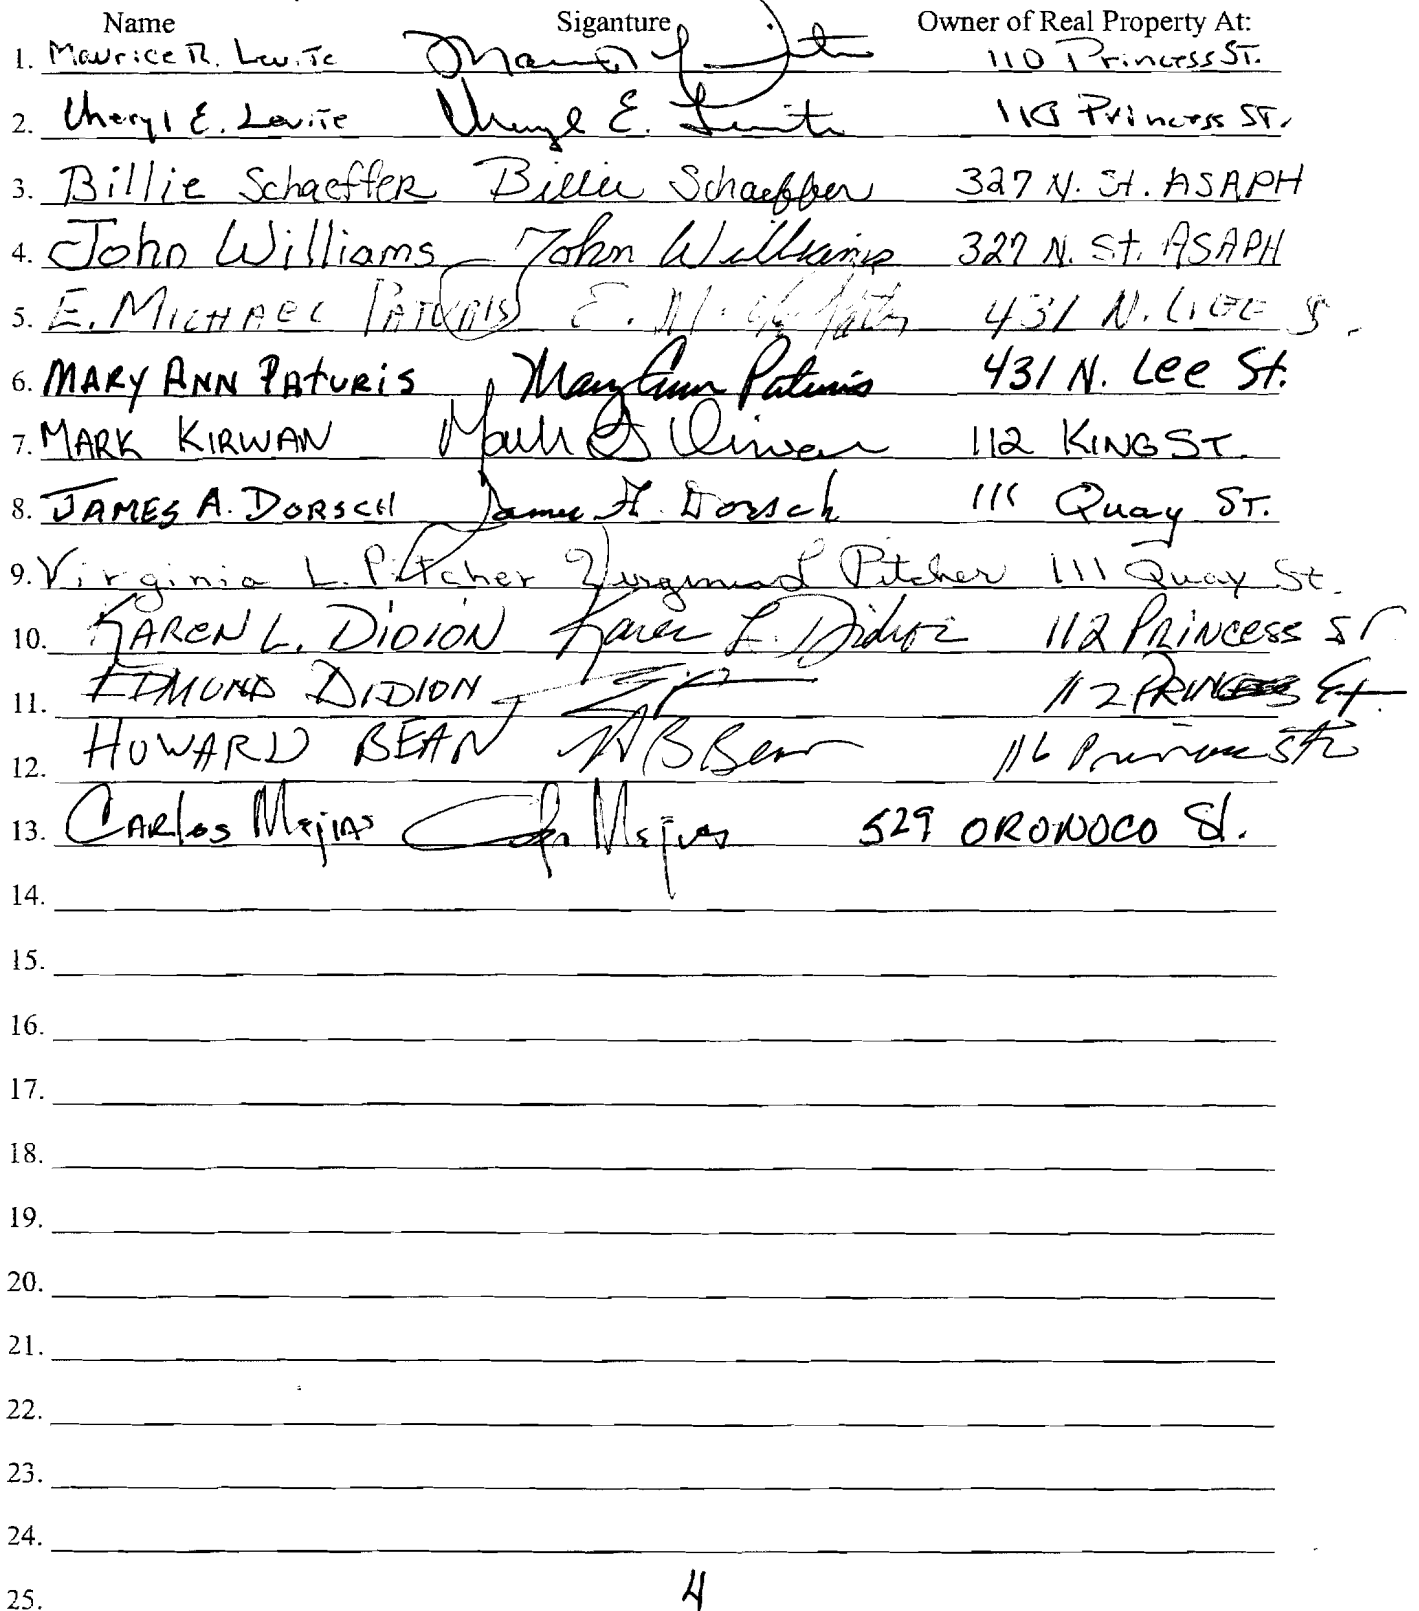 Name Siganture Owner of Real Property At:
1. Maurice R. Levite 110 Princess St.
2. Cheryl E. Levite Cheryl E. Levite 110 Princess St.
3. Billie Schaeffer Billie Schaeffer 327 N. St. ASAPH
4. John Williams John Williams 327 N. St. ASAPH
5. E. MICHAEL PATURIS 431 N. LEE S.
6. MARY ANN PATURIS Mary Ann Paturis 431 N. Lee St.
7. MARK KIRWAN Mark Kirwan 112 KING ST.
8. JAMES A. DORSCH James A. Dorsch 111 Quay ST.
9. Virginia L. Pitcher Virginia L Pitcher 111 Quay St.
10. KAREN L. DIDION Karen L. Didion 112 PRINCESS ST
11. EDMUND DIDION 112 PRINCESS St.
12. HOWARD BEAN HB Bean 116 Princess St
13. CARlos Mejias Mejias 529 ORONOCO St.
14.
15.
16.
17.
18.
19.
20.
21.
22.
23.
24.
25.
4